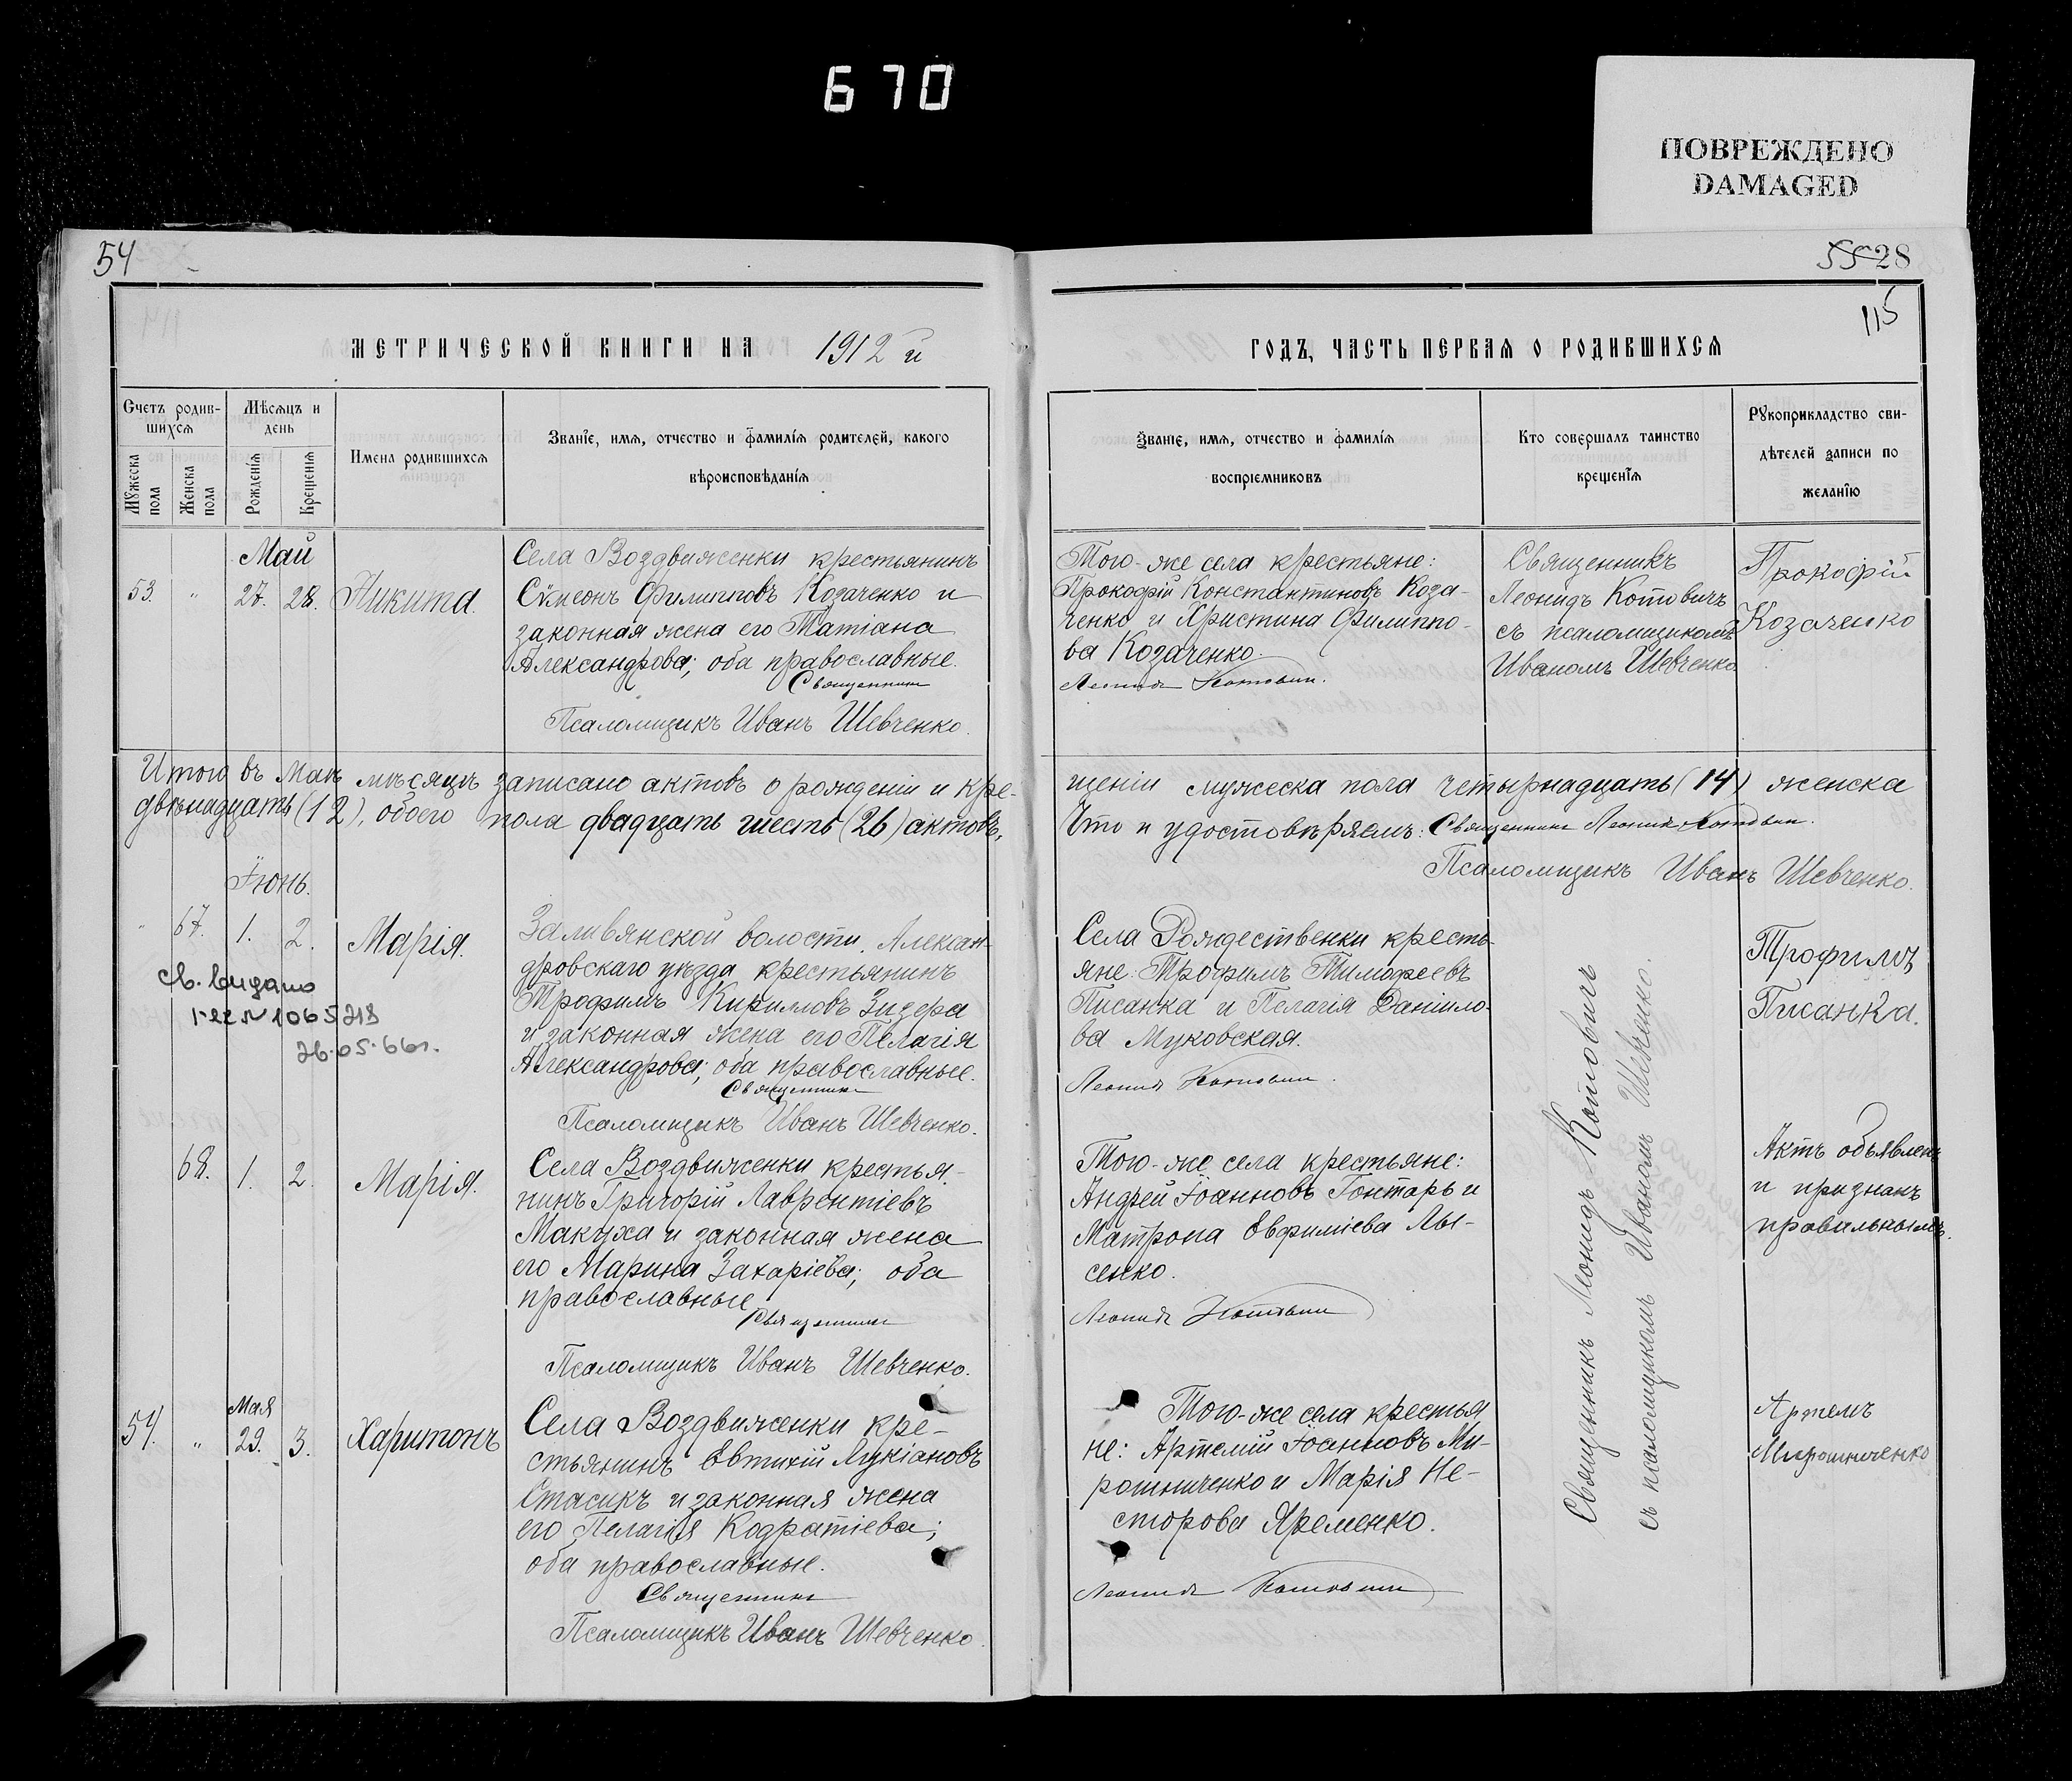 670
ПОВРЕЖДЕНО
DAMAGED
54
55 28
115
МЕТРИЧЕСКОЙ КНИГИ НА 1912 й
ГОДЪ, ЧАСТЬ ПЕРВАЯ О РОДИВШИХСЯ
Счетъ родив-
шихся
Мужеска
пола
Женска
пола
Мѣсяцъ и
день
Рожденія
Крещенія
Имена родившихся
Званіе, имя, отчество и фамилія родителей, какого
вѣроисповѣданія
Званіе, имя, отчество и фамилія
воспріемниковъ
Кто совершалъ таинство
крещенія
Рукоприкладство сви-
дѣтелей записи по
желанію
Май
53. " 27. 28. Никита.
Села Воздвиженки крестьянинъ
Сѵмеонъ Филипповъ Козаченко и
законная жена его Татіана
Александрова; оба православные.
Священникъ
Псаломщикъ Иванъ Шевченко.
Того-же села крестьяне:
Прокофій Константиновъ Коза-
ченко и Христина Филиппо-
ва Козаченко.
Леонидъ Котовичъ.
Священникъ
Леонидъ Котовичъ
съ псаломщикомъ
Иваномъ Шевченко
Прокофій
Козаченко
Итого въ Маѣ мѣсяцѣ записано актовъ о рожденіи и кре-
щеніи мужеска пола четырнадцать (14) женска
двѣнадцать (12), обоего пола двадцать шесть (26) актовъ,
Что и удостовѣряемъ: Священникъ Леонидъ Котовичъ.
Псаломщикъ Иванъ Шевченко.
Іюнь.
" 67. 1. 2. Марія.
Св. видано
I-ЕС № 1065218
26.05.66г.
Заливянской волости, Алексан-
дровскаго уѣзда крестьянинъ
Трофимъ Кирилловъ Зидера
и законная жена его Пелагія
Александрова; оба православные.
Священникъ
Псаломщикъ Иванъ Шевченко.
Села Рождественки кресть-
яне: Трофимъ Тимофеевъ
Писанка и Пелагія Даніило-
ва Муковская.
Леонидъ Котовичъ.
Трофимъ
Писанка.
68. 1. 2. Марія.
Села Воздвиженки крестья-
нинъ Григорій Лаврентіевъ
Макуха и законная жена
его Марина Захаріева; оба
православные
Священникъ
Псаломщикъ Иванъ Шевченко.
Того-же села крестьяне:
Андрей Іоанновъ Гонтарь и
Матрона Евфиміева Лы-
сенко.
Леонидъ Котовичъ
Актъ объявленъ
и признанъ
правильнымъ.
Священникъ Леонидъ Котовичъ
съ псаломщикомъ Иваномъ Шевченко.
Мая
54. " 29. 3. Харитонъ
Села Воздвиженки кре-
стьянинъ Евтихій Лукіановъ
Стасикъ и законная жена
его Пелагія Кодратіева;
оба православные.
Священникъ
Псаломщикъ Иванъ Шевченко.
Того-же села крестья
не: Артемій Іоанновъ Ми-
рошниченко и Марія Не-
сторова Яременко.
Леонидъ Котовичъ
Артемъ
Мирошниченко